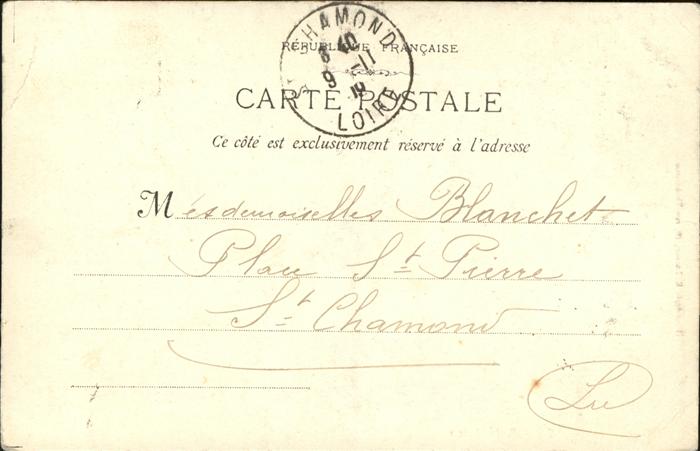 ST CHAMOND
LOIRE
RÉPUBLIQUE FRANÇAISE
CARTE POSTALE
Ce côté est exclusivement réservé à l'adresse
Mesdemoiselles Blanchet
Place St Pierre
St Chamond